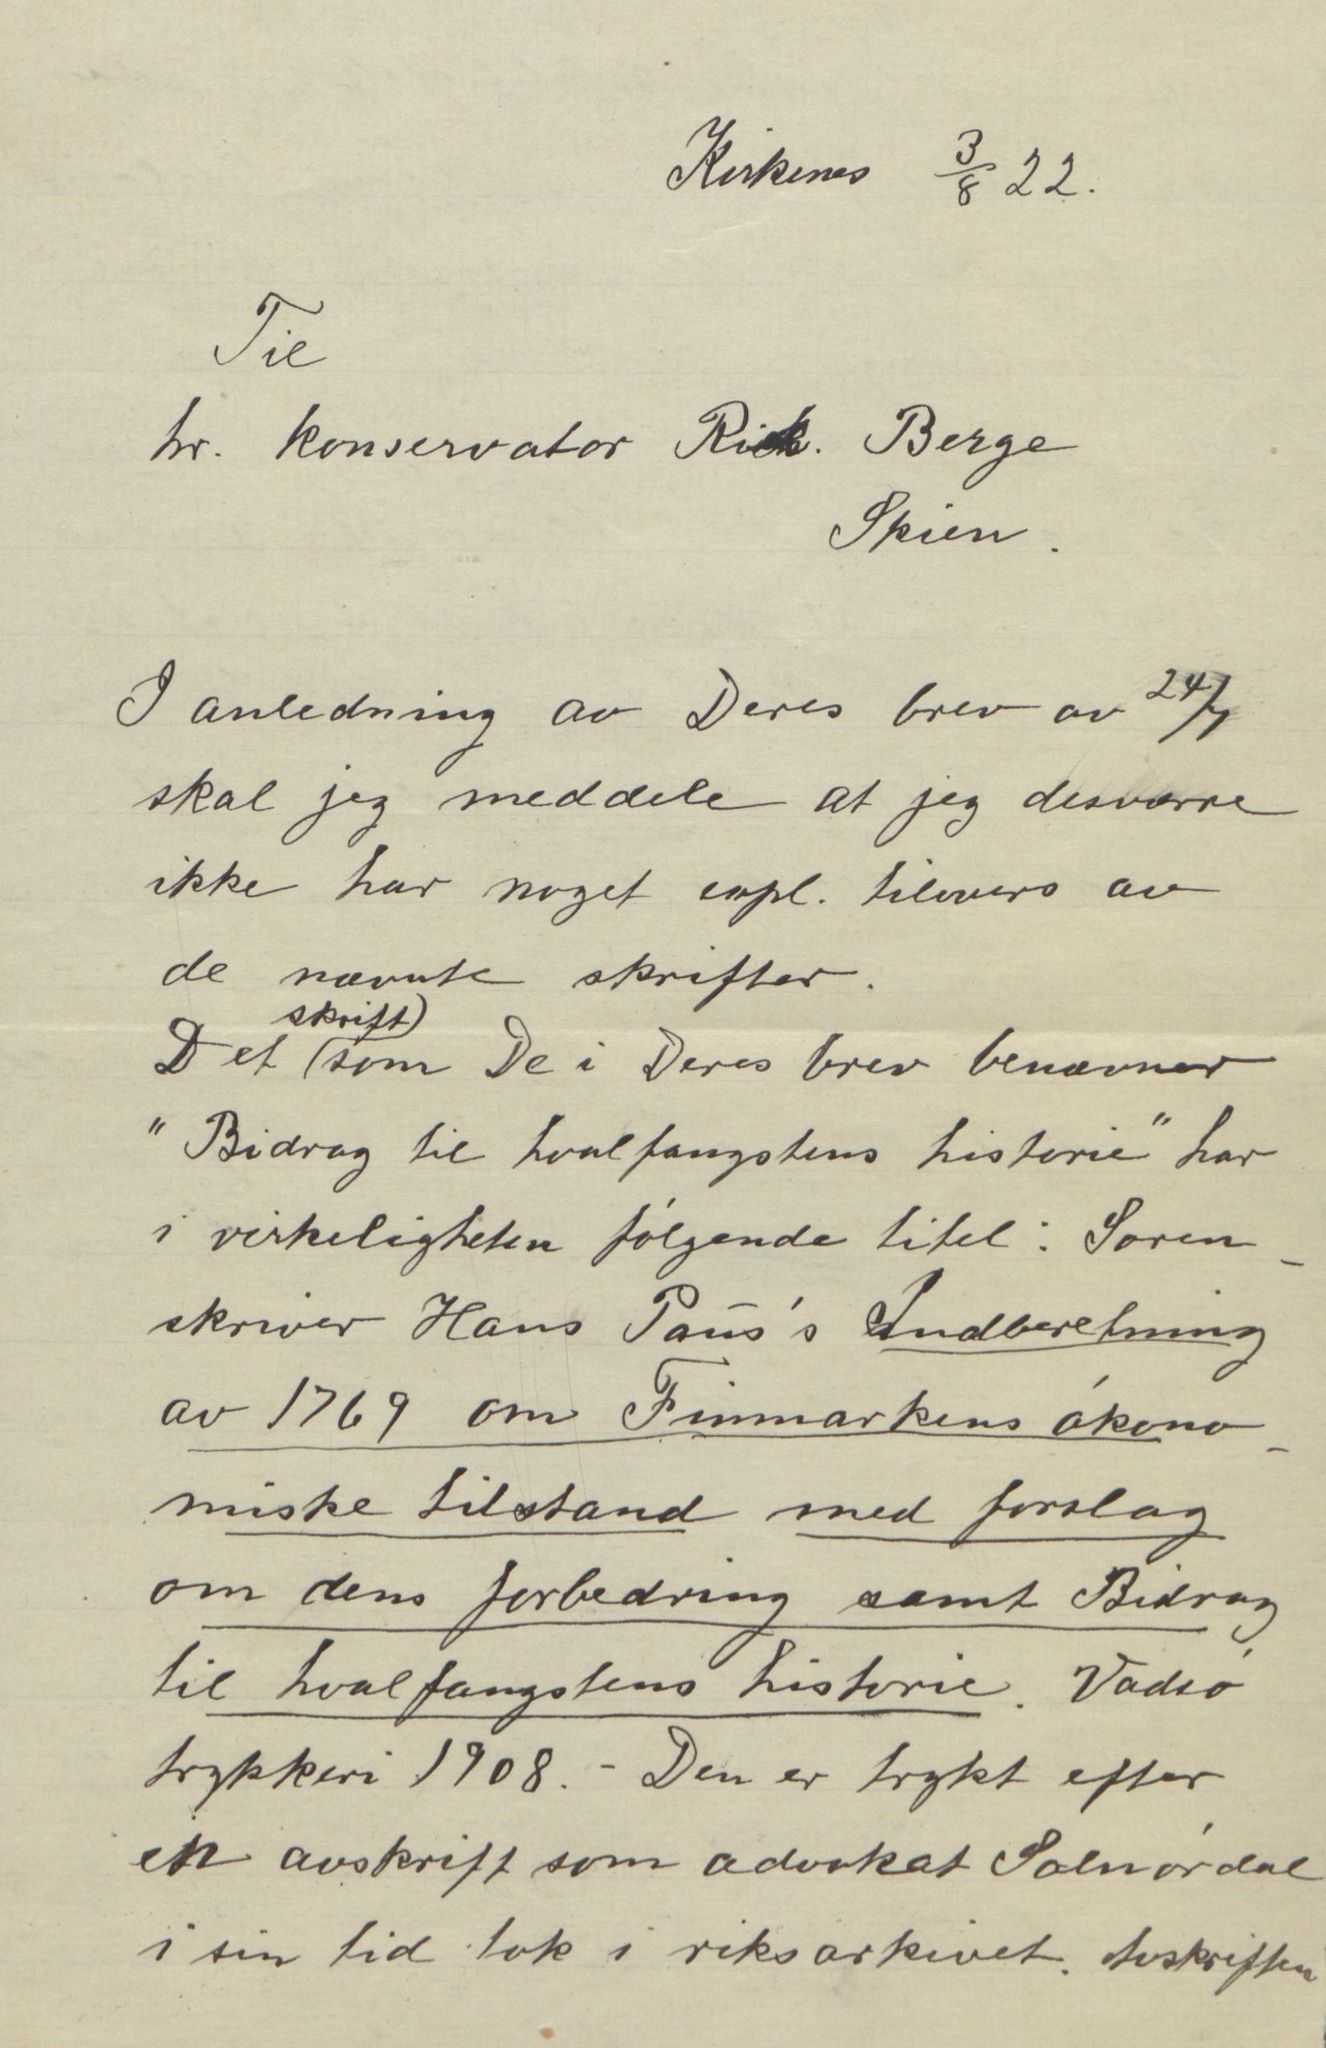 Kirkenes 3/8 22.
Til
hr. konservator Rik. Berge
Skien.
I anledning av Deres brev av 24/7
skal jeg meddele at jeg desværre
ikke har noget expl. tilovers av
de nævnte skrifter.
skrift)
Det (som De i Deres brev benævner
"Bidrag til hvalfangstens historie" har
i virkeligheten følgende titel: Soren-
skriver Hans Paus's Indberetning
av 1769 om Finmarkens økono-
miske tilstand med forslag
om dens forbedring samt Bidrag
til hvalfangstens historie. Vadsø
trykkeri 1908. - Den er trykt efter
en avskrift som advokat Solnørdal
i sin tid tok i riksarkivet. Avskriften